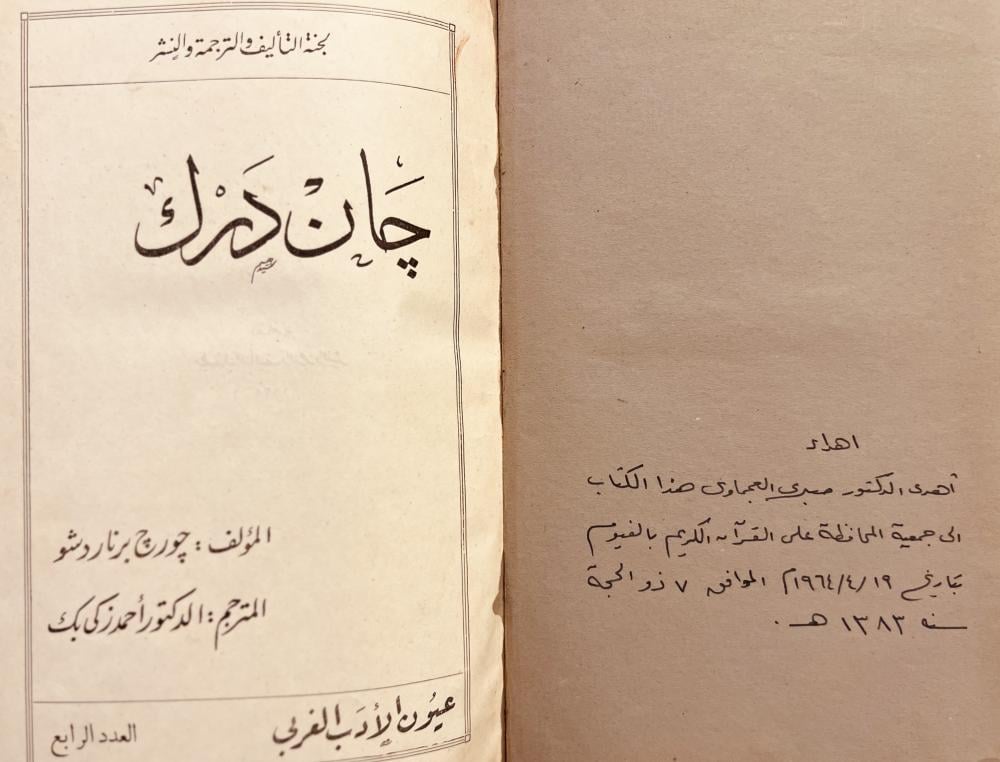 لجنة التأليف والترجمة والنشر
چان دَرْك
المؤلف : چورچ برنارد شو
المترجم : الدكتور أحمد زكى بك
عيُون الأدَب الغربي
العدد الرابع
اهداء
أهدى الدكتور صبرى العجماوى هذا الكتاب
الى جمعية المحافظة على القرآن الكريم بالفيوم
بتاريخ ١٩٦٤/٤/١٩م الموافق ٧ ذو الحجة
سنه ١٣٨٣ هـ .